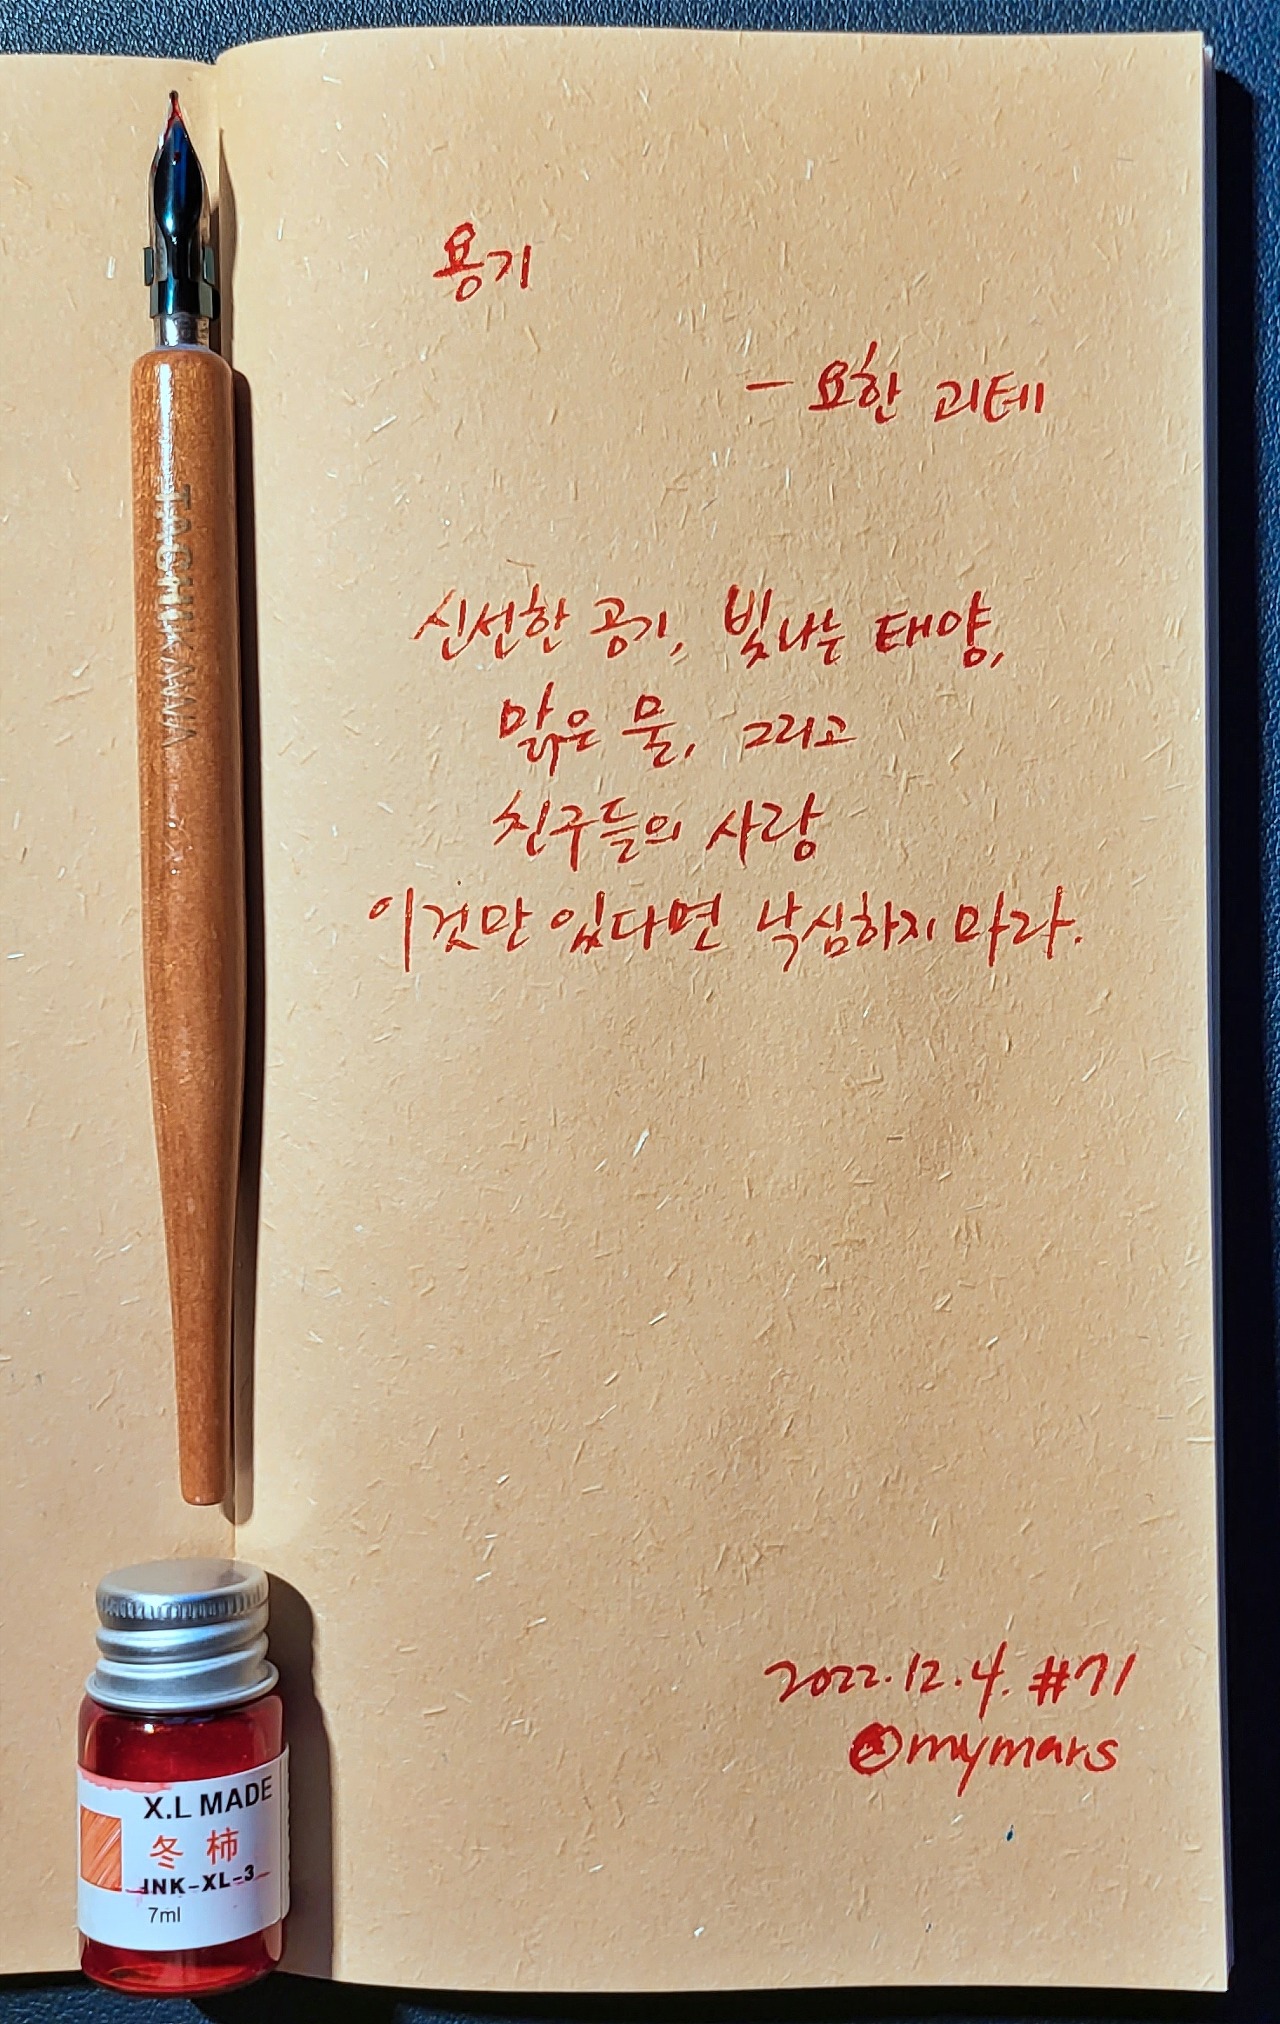 용기
- 요한 괴테
신선한 공기, 빛나는 태양,
맑은 물, 그리고
친구들의 사랑
이것만 있다면 낙심하지 마라.
2022.12.4. #71
@mymars
TACHIKAWA
X.L MADE
冬柿
INK-XL-3
7ml